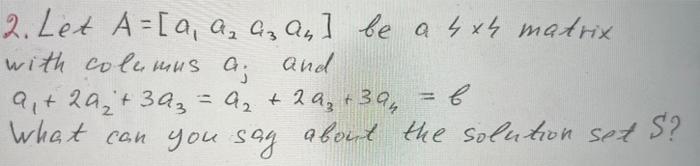 2. Let A = [a₁ a₂ a₃ a₄] be a 4x4 matrix
with columns aⱼ and
a₁ + 2a₂ + 3a₃ = a₂ + 2a₃ + 3a₄ = b
What can you say about the solution set S?